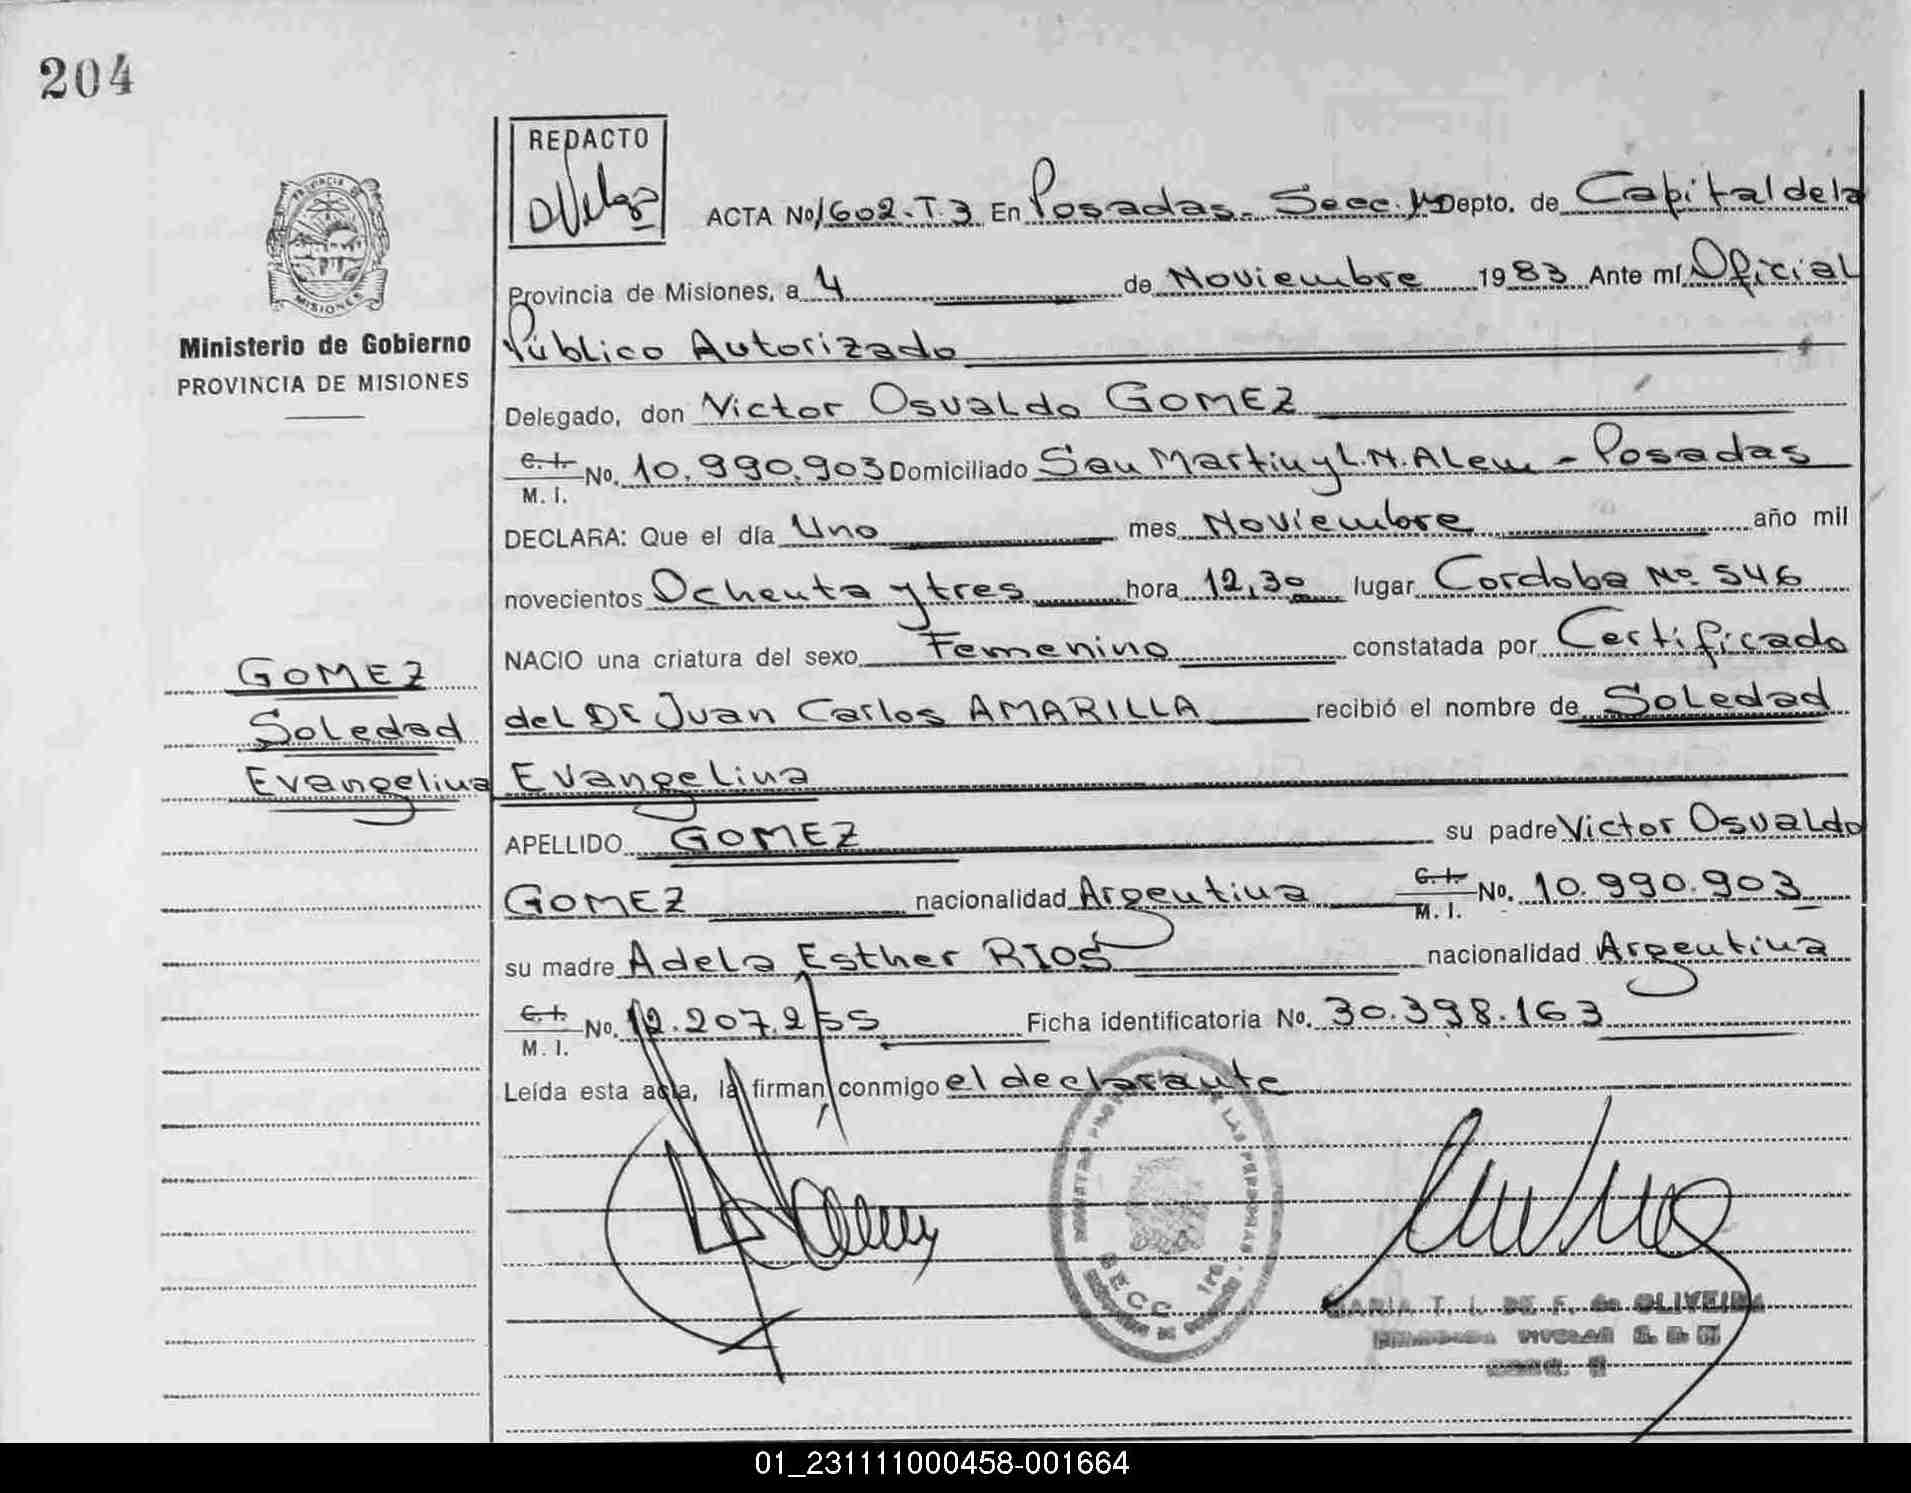 204
REDACTO
PROVINCIA DE
MISIONES
Ministerio de Gobierno
PROVINCIA DE MISIONES
ACTA No 1602-T.3 En Posadas - Secc. Depto. de Capital de la
Provincia de Misiones, a 4 de Noviembre 1983 Ante mí Oficial
Público Autorizado
Delegado, don Victor Osvaldo GOMEZ
C. I. M. I. No. 10.990.903 Domiciliado San Martin y L.N. Alem - Posadas
DECLARA: Que el día Uno mes Noviembre año mil
novecientos Ochenta y tres hora 12,30 lugar Cordoba No. 546
NACIO una criatura del sexo Femenino constatada por Certificado
del Dr Juan Carlos AMARILLA recibió el nombre de Soledad
Evangelina
GOMEZ
Soledad
Evangelina
APELLIDO GOMEZ su padre Victor Osvaldo
GOMEZ nacionalidad Argentina C. I. M. I. No. 10.990.903
su madre Adela Esther RIOS nacionalidad Argentina
C. I. M. I. No. 12.207.255 Ficha identificatoria No. 30.398.163
Leída esta acta, la firman conmigo el declarante
DE LAS PERSONAS
SECC. 1ra.
MARIA T. I. DE F. de OLIVEIRA
TITULAR
01_231111000458-001664